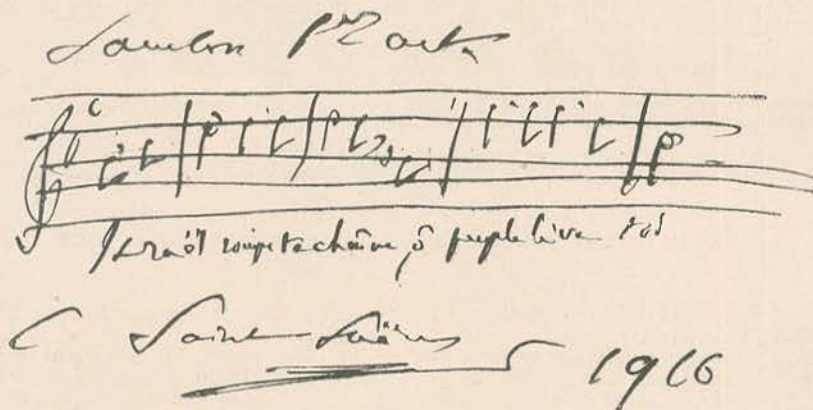 Samson 1er acte
Israël romps ta chaîne, ô peuple lève toi
C Saint-Saëns
1916